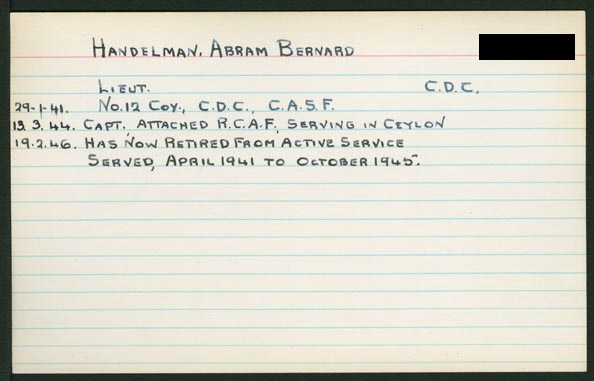 HANDELMAN, ABRAM BERNARD
LIEUT. C.D.C.
29-1-41. No.12 COY., C.D.C., C.A.S.F.
13.3.44. CAPT. ATTACHED R.C.A.F. SERVING IN CEYLON
19.2.46. HAS NOW RETIRED FROM ACTIVE SERVICE
SERVED, APRIL 1941 TO OCTOBER 1945.